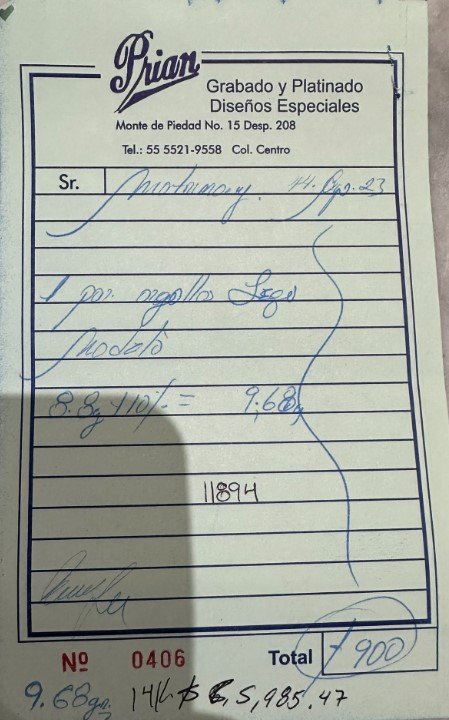 Prian
Grabado y Platinado
Diseños Especiales
Monte de Piedad No. 15 Desp. 208
Tel.: 55 5521-9558 Col. Centro
Sr. 23
1 par
Modelo
8.8g +10% = 9,68g
11894
Nº 0406 Total 900
9.68gr 14k $ 5,985.47